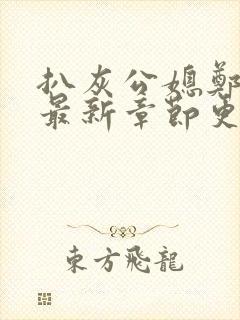 扒灰公媳鄭
最新章節更
東方飛龍